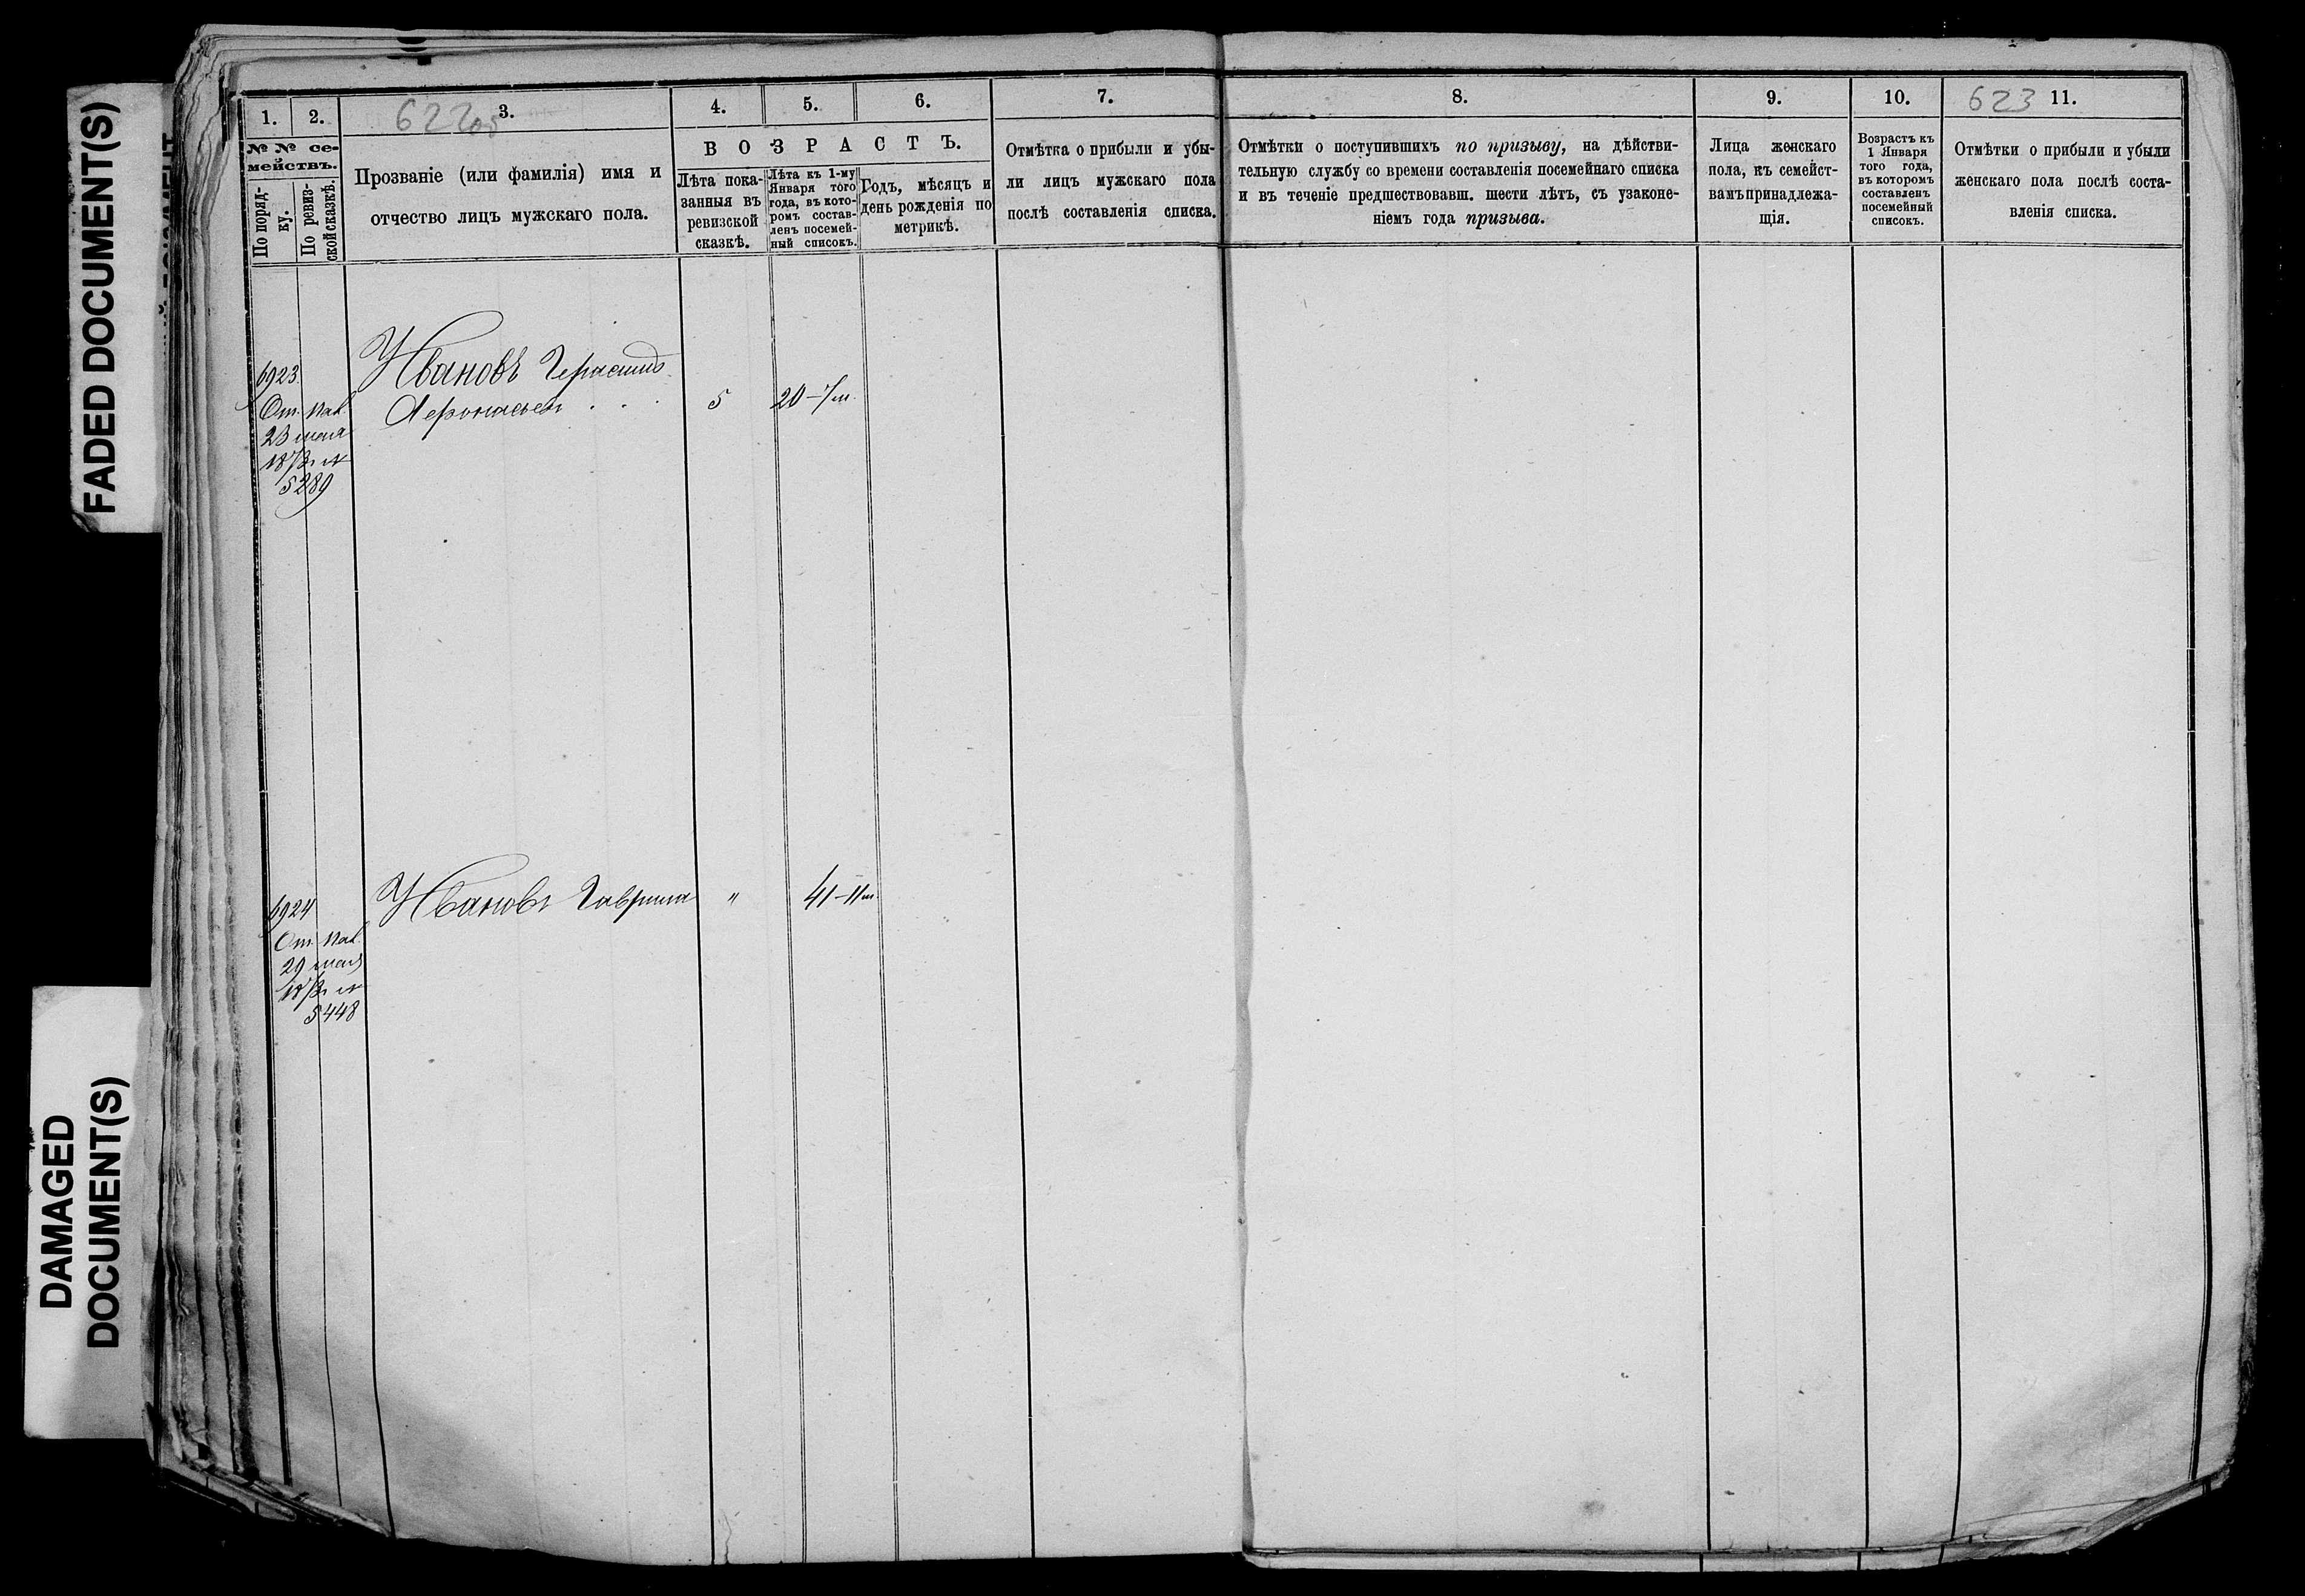 FADED DOCUMENT(S)
DAMAGED
DOCUMENT(S)
1.
2.
3.
622
4.
5.
6.
7.
8.
9.
10.
623
11.
№ № се-
мействъ.
По поряд-
ку.
По ревиз-
ской сказкѣ.
Прозваніе (или фамилія) имя и
отчество лицъ мужскаго пола.
ВОЗРАСТЪ.
Лѣта пока-
занныя въ
ревизской
сказкѣ.
Лѣта къ 1-му
Января того
года, въ кото-
ромъ состав-
ленъ посемей-
ный списокъ.
Годъ, мѣсяцъ и
день рожденія по
метрикѣ.
Отмѣтка о прибыли и убы-
ли лицъ мужскаго пола
послѣ составленія списка.
Отмѣтки о поступившихъ по призыву, на дѣйстви-
тельную службу со времени составленія посемейнаго списка
и въ теченіе предшествовавш. шести лѣтъ, съ узаконе-
ніемъ года призыва.
Лица женскаго
пола, къ семейст-
вамъ принадлежа-
щія.
Возрастъ къ
1 Января
того года,
въ которомъ
составленъ
посемейный
списокъ.
Отмѣтки о прибыли и убыли
женскаго пола послѣ соста-
вленія списка.
6923.
Ивановъ Герасимъ
От. Пал.
23 мая
5289
5
20-7/м.
6924
Ивановъ Гаврила
"
41-11м
От. Пал.
29 мая
5448